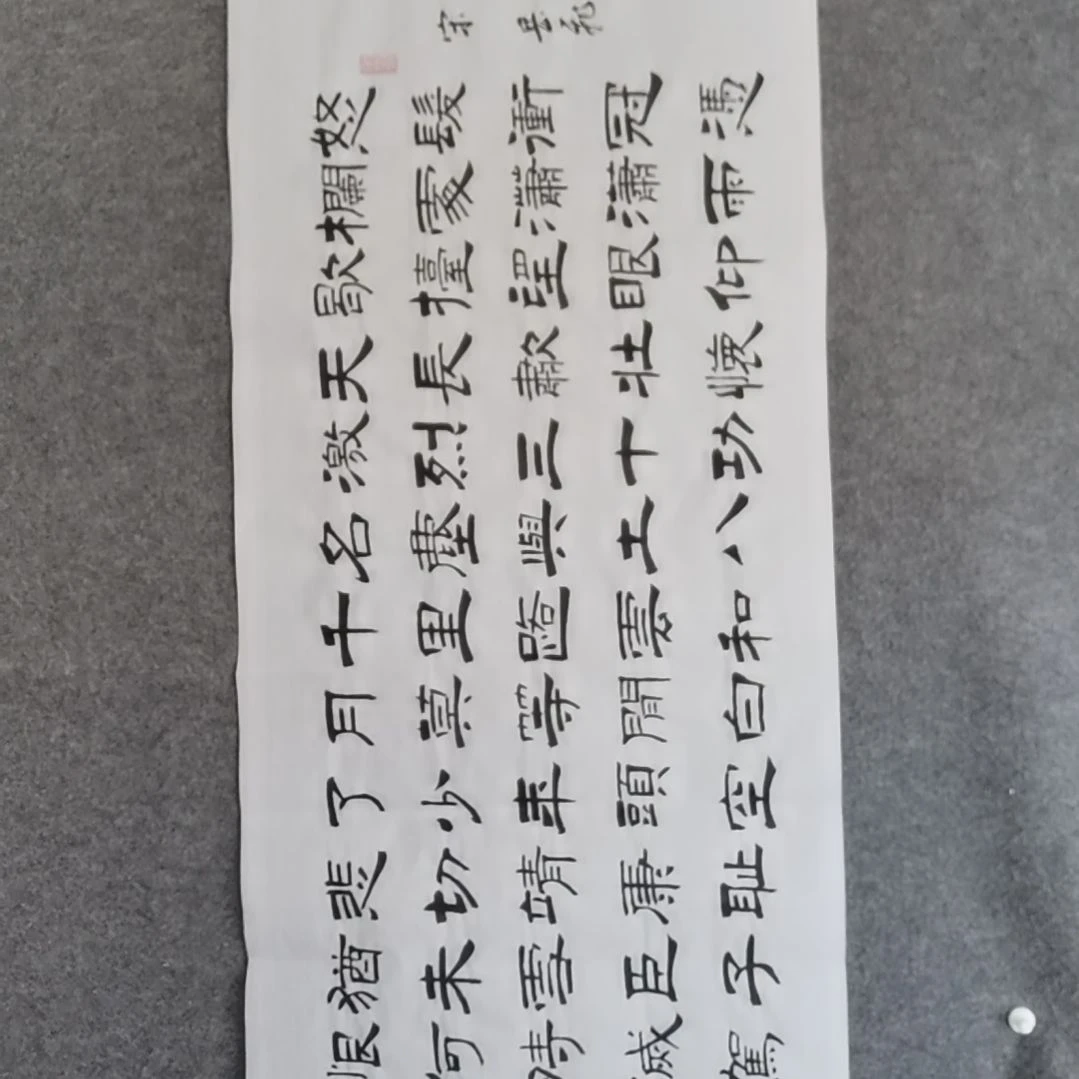 宋 岳飛
怒髮衝冠憑
欄處瀟瀟雨
歇擡望眼仰
天長歗壯懷
激烈三十功
名塵與土八
千里路雲和
月莫等閒白
了少年頭空
悲切靖康耻
猶未雪臣子
恨何時滅駕